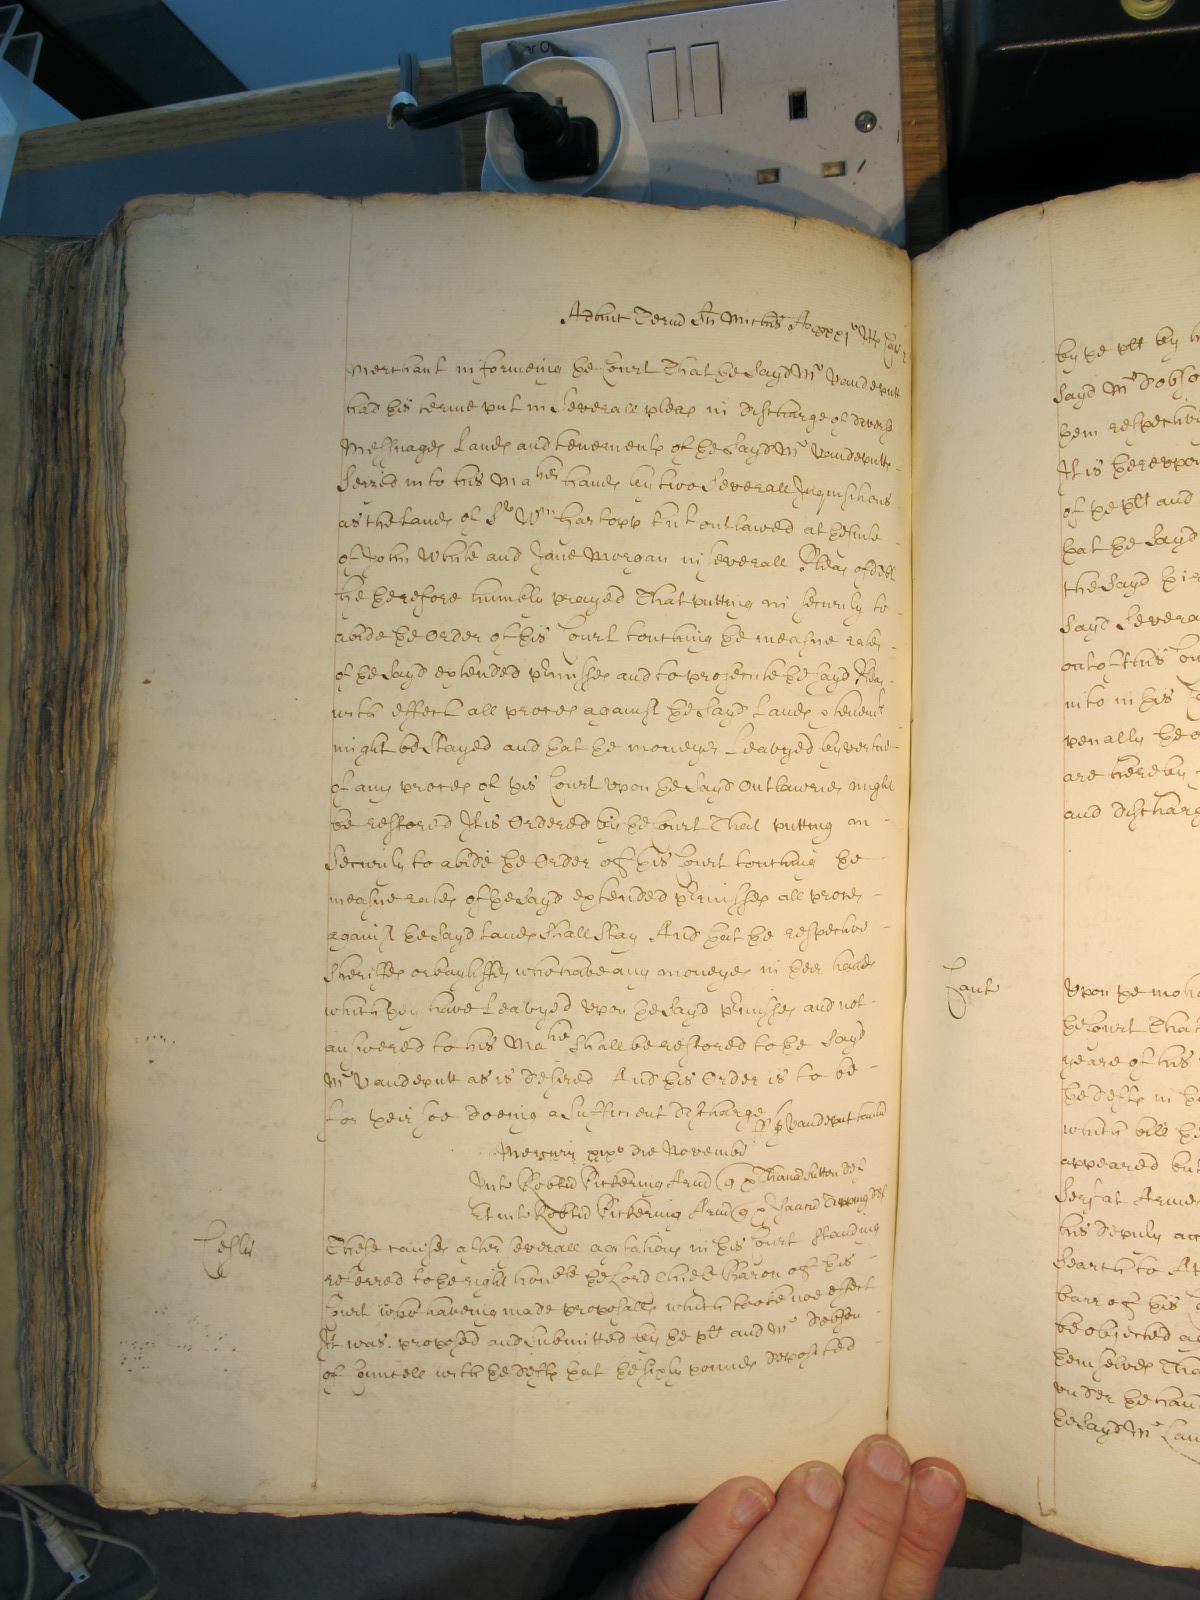 Adhuc Term Sci Mich
Merchant informeing the Court That the Sayd Mr Vandeputt
had his terme put in Severall pleas in discharge of divers
Messuages Lands and tenements of the Sayd Mr Vandeputts
Seized into his Maties hands by two Severall Inquisitions
as the Lands of Sr Wm Hartopp Knt outlawed at the suite
of John White and Jane Morgan in severall Pleas of debt
he therefore humbly prayed That putting in security to
abide the Order of this Court touching the measne rates
of the Sayd extended premisses and to prosecute the Sayd Pleas
with effect all proces against the Sayd Lands & tenemts
might be Stayed and that the moneyes Leavyed by vertue
of any proces of this Court upon the Sayd Outlawries might
be restored It is Ordered by the Court That putting in
Security to abide the Order of this Court touching the
measne rates of the Sayd extended premisses all proces
against the Sayd Lands Shall Stay And that the respective
Sheriffes or bayliffes who have any moneyes in their hands
which they have Leavyed upon the Sayd premisses and not
answered to his Matie Shall be restored to the Sayd
Mr Vandeputt as is desired And this Order is to be
for their soe doeing a Sufficient discharge
Mercurii xxxo die Novembr
Inter Robtum Pickering Arm Sutton def
Et inter Robtum Pickering Arm
These causes after severall agitations in this Court Standing
referred to the right honble the Lord Chiefe Baron of this
Court who haveing made proposalls which tooke noe effect
It was proposed and Submitted by the plt and Mr Dobson
of Councell with the defts that the sixty pounds deposited
by the plt by
Sayd Mr Dobso
them respective
It is thereupon
of the plt and
that the Sayd
the Sayd
Sayd Severa
out of this Cou
into in this
penalty the
are hereby
and discharg
Cant
Upon the mo
the Court That
yeare of his
the defts in
which bill
appeared but
Serjat Arme
his deputy
Search to
barr of this
be objected
themselves Tha
under the han
the Sayd Mr